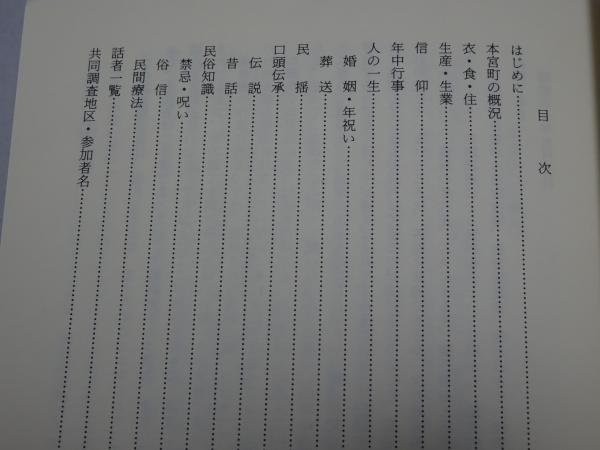 目次
はじめに
本宮町の概況
衣・食・住
生産・生業
信仰
年中行事
人の一生
婚姻・年祝い
葬送
民揺
口頭伝承
伝説
昔話
民俗知識
禁忌・呪い
俗信
民間療法
話者一覧
共同調査地区・参加者名